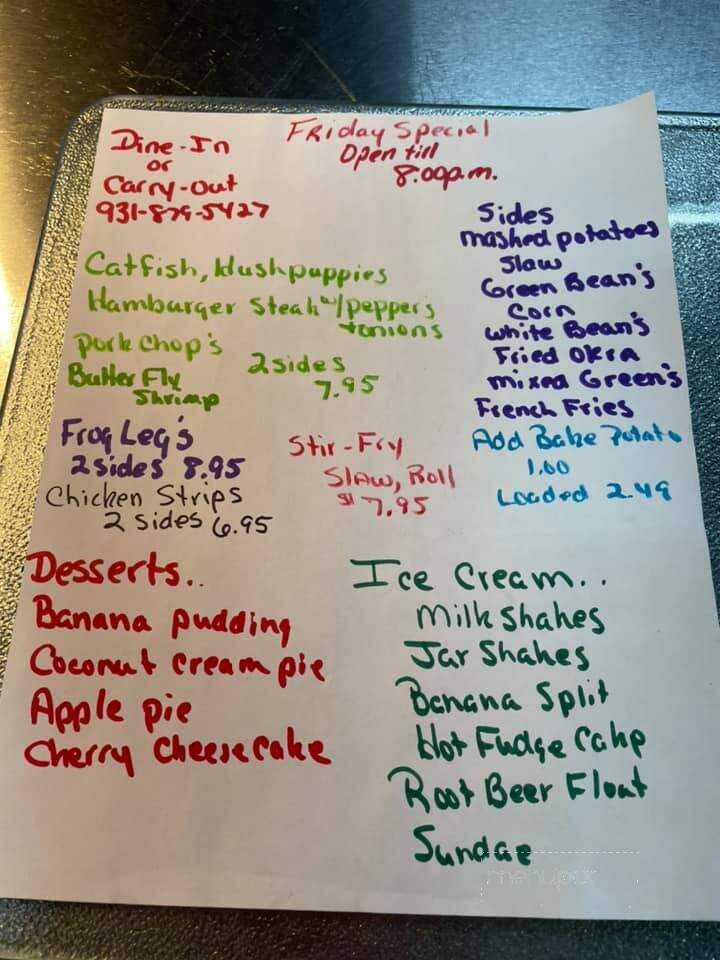 Dine-In
or
Carry-out
931-879-5427
Friday Special
Open till
8:00p.m.
Catfish, Hushpuppies
Hamburger Steak w/peppers
+onions
Pork chop's
Butter Fly
Shrimp
2 sides
7.95
Frog Leg's
2 sides 8.95
Chicken Strips
2 sides 6.95
Stir-Fry
Slaw, Roll
$7.95
Sides
mashed potatoes
Slaw
Green Bean's
Corn
white Bean's
Fried OKRA
mixed Green's
French Fries
Add Bake Potato
1.00
Loaded 2.49
Desserts..
Banana pudding
Coconut cream pie
Apple pie
Cherry Cheesecake
Ice Cream..
Milk Shakes
Jar Shakes
Banana Split
Hot Fudge Cake
Root Beer Float
Sundae
menupix